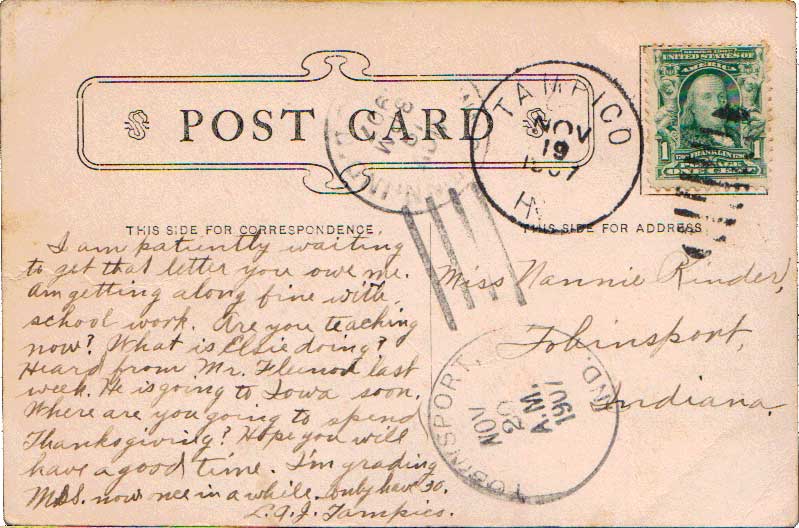 POST CARD
TAMPICO
NOV
19
1907
UNITED STATES OF
AMERICA
1
1
FRANKLIN
ONE CENT
THIS SIDE FOR CORRESPONDENCE.
THIS SIDE FOR ADDRESS
I am patiently waiting
to get that letter you owe me.
Am getting along fine with
school work. Are you teaching
now? What is Elsie doing?
Heard from Mr. last
week. He is going to Iowa soon.
Where are you going to spend
Thanksgiving? Hope you will
have a good time. I'm grading
MSS. now once in a while. only have 30.
Tampico.
Miss Nannie Rinder,
Tobinsport,
Indiana.
TOBINSPORT, IND.
NOV
20
A.M.
1907